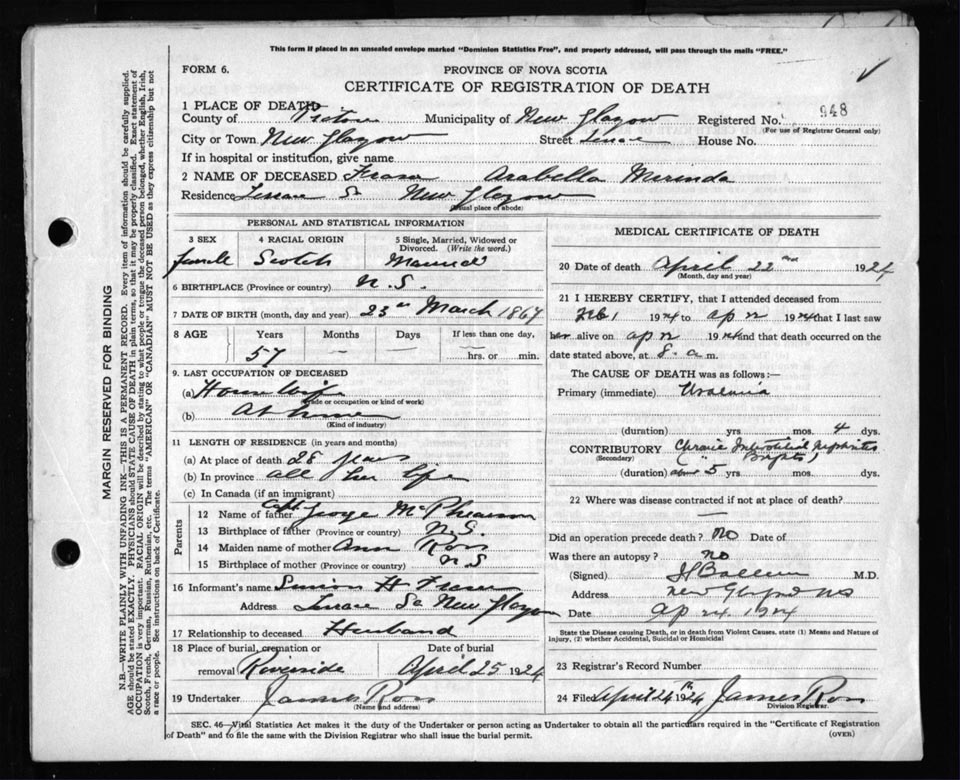 This form if placed in an unsealed envelope marked "Dominion Statistics Free", and properly addressed, will pass through the mails "FREE."
FORM 6.
PROVINCE OF NOVA SCOTIA
CERTIFICATE OF REGISTRATION OF DEATH
1 PLACE OF DEATH
County of Pictou Municipality of New Glasgow Registered No. 948
(For use of Registrar General only)
City or Town New Glasgow Street House No.
If in hospital or institution, give name
2 NAME OF DECEASED Fraser Arabella Merinda
Residence New Glasgow
(Usual place of abode)
PERSONAL AND STATISTICAL INFORMATION
3 SEX 4 RACIAL ORIGIN 5 Single, Married, Widowed or Divorced. (Write the word.)
Female Scotch Married
6 BIRTHPLACE (Province or country) N.S.
7 DATE OF BIRTH (month, day and year) 23rd March 1867
8 AGE Years Months Days If less than one day,
57 — — hrs. or min.
9. LAST OCCUPATION OF DECEASED
(a) Housewife
(Trade or occupation or kind of work)
(b) At home
(Kind of industry)
11 LENGTH OF RESIDENCE (in years and months)
(a) At place of death 28 years
(b) In province all her life
(c) In Canada (if an immigrant)
Parents
12 Name of father Capt George McPhearson
13 Birthplace of father (Province or country) N.S.
14 Maiden name of mother Ann Ross
15 Birthplace of mother (Province or country) N.S
16 Informant's name Simon H Fraser
Address New Glasgow
17 Relationship to deceased Husband
18 Place of burial, cremation or removal Riverside Date of burial April 25 1924
19 Undertaker James Ross
(Name and address)
MEDICAL CERTIFICATE OF DEATH
20 Date of death April 22nd 1924
(Month, day and year)
21 I HEREBY CERTIFY, that I attended deceased from
1924 to 1924 that I last saw
her alive on 1924 and that death occurred on the
date stated above, at 8. a.m.
The CAUSE OF DEATH was as follows:—
Primary (immediate) Uraemia
(duration) yrs mos. 4 dys.
CONTRIBUTORY Chronic Interstitial Nephritis
(Secondary) (Brights)
(duration) about 5 yrs. mos. dys.
22 Where was disease contracted if not at place of death?—
Did an operation precede death? no Date of
Was there an autopsy? no
(Signed) M.D.
Address New Glasgow NS
Date Ap 24 1924
State the Disease causing Death, or in death from Violent Causes, state (1) Means and Nature of
Injury, (2) whether Accidental, Suicidal or Homicidal
23 Registrar's Record Number
24 Filed April 24th 1924 James Ross
Division Registrar.
SEC. 46—Vital Statistics Act makes it the duty of the Undertaker or person acting as Undertaker to obtain all the particulars required in the "Certificate of Registration
of Death" and to file the same with the Division Registrar who shall issue the burial permit. (OVER)
MARGIN RESERVED FOR BINDING
N.B.—WRITE PLAINLY WITH UNFADING INK—THIS IS A PERMANENT RECORD. Every item of information should be carefully supplied.
AGE should be stated EXACTLY. PHYSICIANS should STATE CAUSE OF DEATH in plain terms, so that it may be properly classified. Exact statement of
OCCUPATION is very important. RACIAL ORIGIN will be described by stating to what people or tongue the deceased person belonged, whether English, Irish,
Scotch, French, German, Russian, Ruthenian, etc. The terms "AMERICAN" OR "CANADIAN" MUST NOT BE USED as they express citizenship but not
a race or people. See instructions on back of Certificate.